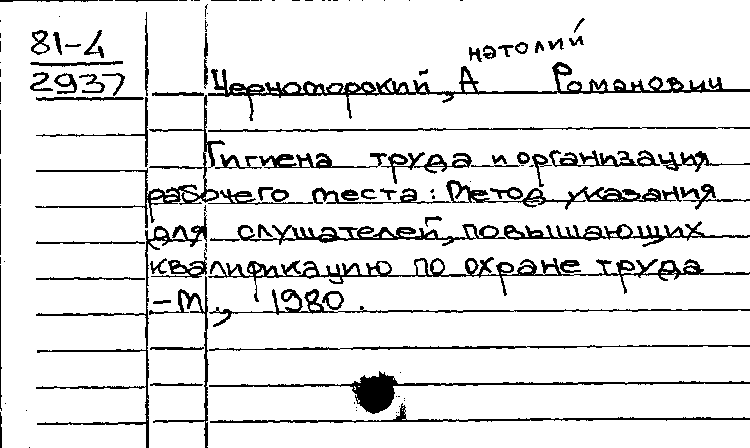 81-4
2937
натолий
Черноморский, А Романович
Гигиена труда и организация
рабочего места: Метод указания
для слушателей, повышающих
квалификацию по охране труда
-М, 1980.